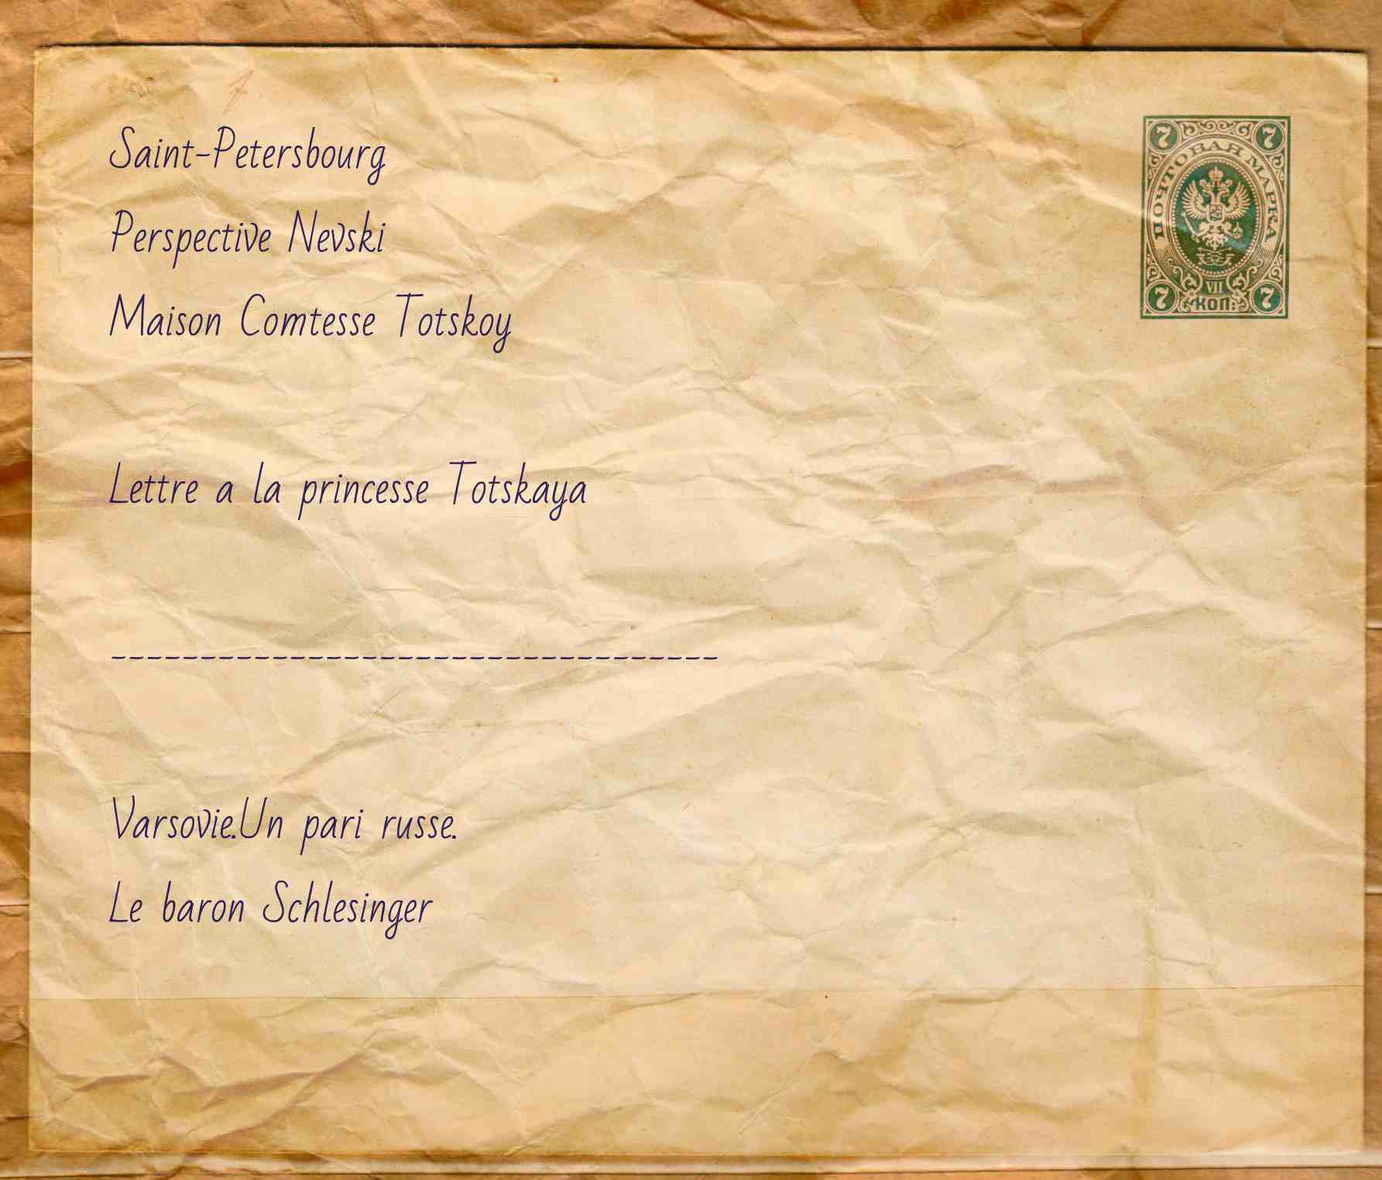 Saint-Petersbourg
Perspective Nevski
Maison Comtesse Totskoy
Lettre a la princesse Totskaya
----------------------------------
Varsovie.Un pari russe.
Le baron Schlesinger
7 7
ПОЧТОВАЯ МАРКА
VII
7 КОП. 7